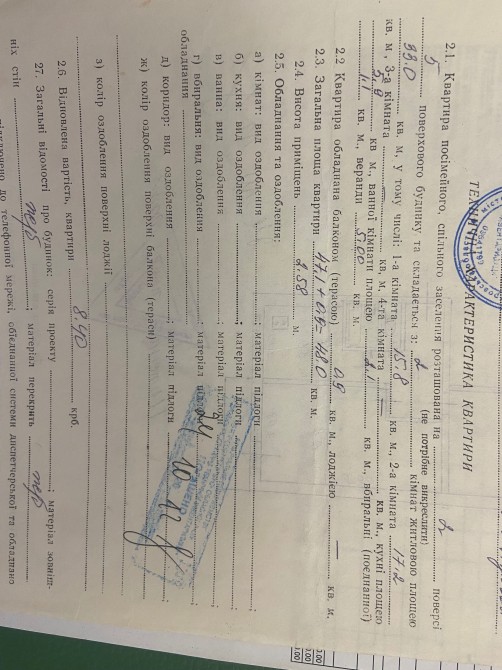 ТЕХНІЧНА ХАРАКТЕРИСТИКА КВАРТИРИ
2.1. Квартира посімейного, спільного заселення розташована на 2 поверсі
(не потрібне викреслити)
5 поверхового будинку та складається з: 2 кімнат житловою площею
33.0 кв. м, у тому числі: 1-а кімната 15.8 кв. м., 2-а кімната 17.2
кв. м, 3-а кімната кв. м, 4-та кімната кв. м., кухні площею
5,9 кв м., ванної кімнати площею 2.1 кв. м., вбиральні (поєднанної)
1,1 кв. м., веранди кв. м.
2.2 Квартира обладнана балконом (терасою) 0,9 кв. м., лоджією — кв. м.
2.3. Загальна площа квартири 47,1+0,9=48.0 кв. м.
2.4. Висота приміщень 2.58 м.
2.5. Обладнання та оздоблення:
а) кімнат: вид оздоблення ; матеріал підлоги ;
б) кухня: вид оздоблення ; матеріал підлоги ;
в) ванна: вид оздоблення ; матеріал підлоги ;
г) вбиральня: вид оздоблення ; матеріал підлоги ;
обладнання
д) коридор: вид оздоблення ; матеріал підлоги
ж) колір оздоблення поверхні балкона (тераси)
з) колір оздоблення поверхні лоджії
2.6. Відновлена вартість, квартири 840 крб.
27. Загальні відомості про будинок: серія проекту ; матеріал зовніш-
ніх стін ; матеріал перекрить
до телефонної мережі, обєднанної системи диспетчерської та обладнано